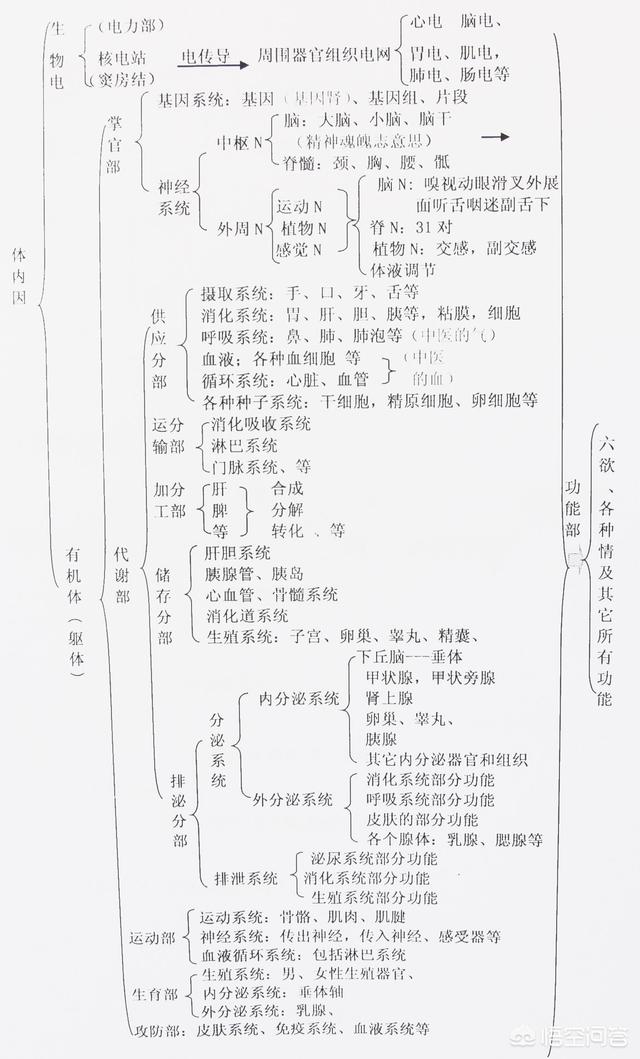 体内因
生物电
(电力部)
核电站
(窦房结)
电传导
周围器官组织电网
心电 脑电、
胃电、肌电,
肺电、肠电等
有机体(躯体)
掌官部
基因系统：基因(基因肾)、基因组、片段
神经系统
中枢 N
脑：大脑、小脑、脑干
(精神魂魄志意思)
脊髓：颈、胸、腰、骶
外周 N
运动 N
植物 N
感觉 N
脑 N：嗅视动眼滑叉外展
面听舌咽迷副舌下
脊 N：31 对
植物 N：交感，副交感
体液调节
代谢部
供应分部
摄取系统：手、口、牙、舌等
消化系统：胃、肝、胆、胰等，粘膜，细胞
呼吸系统：鼻、肺、肺泡等(中医的气)
血液；各种血细胞 等
循环系统：心脏、血管
(中医的血)
各种种子系统：干细胞，精原细胞、卵细胞等
运输分部
消化吸收系统
淋巴系统
门脉系统、等
加工分部
肝
脾
等
合成
分解
转化 、等
储存分部
肝胆系统
胰腺管、胰岛
心血管、骨髓系统
消化道系统
生殖系统：子宫、卵巢、睾丸、精囊、
排泌分部
分泌系统
内分泌系统
下丘脑---垂体
甲状腺，甲状旁腺
肾上腺
卵巢、睾丸、
胰腺
其它内分泌器官和组织
外分泌系统
消化系统部分功能
呼吸系统部分功能
皮肤的部分功能
各个腺体：乳腺、腮腺等
排泄系统
泌尿系统部分功能
消化系统部分功能
生殖系统部分功能
运动部
运动系统：骨骼、肌肉、肌腱
神经系统：传出神经，传入神经、感受器等
血液循环系统：包括淋巴系统
生育部
生殖系统：男、女性生殖器官、
内分泌系统：垂体轴
外分泌系统：乳腺、
攻防部：皮肤系统、免疫系统、血液系统等
功能部
六欲、各种情及其它所有功能
悟空问答